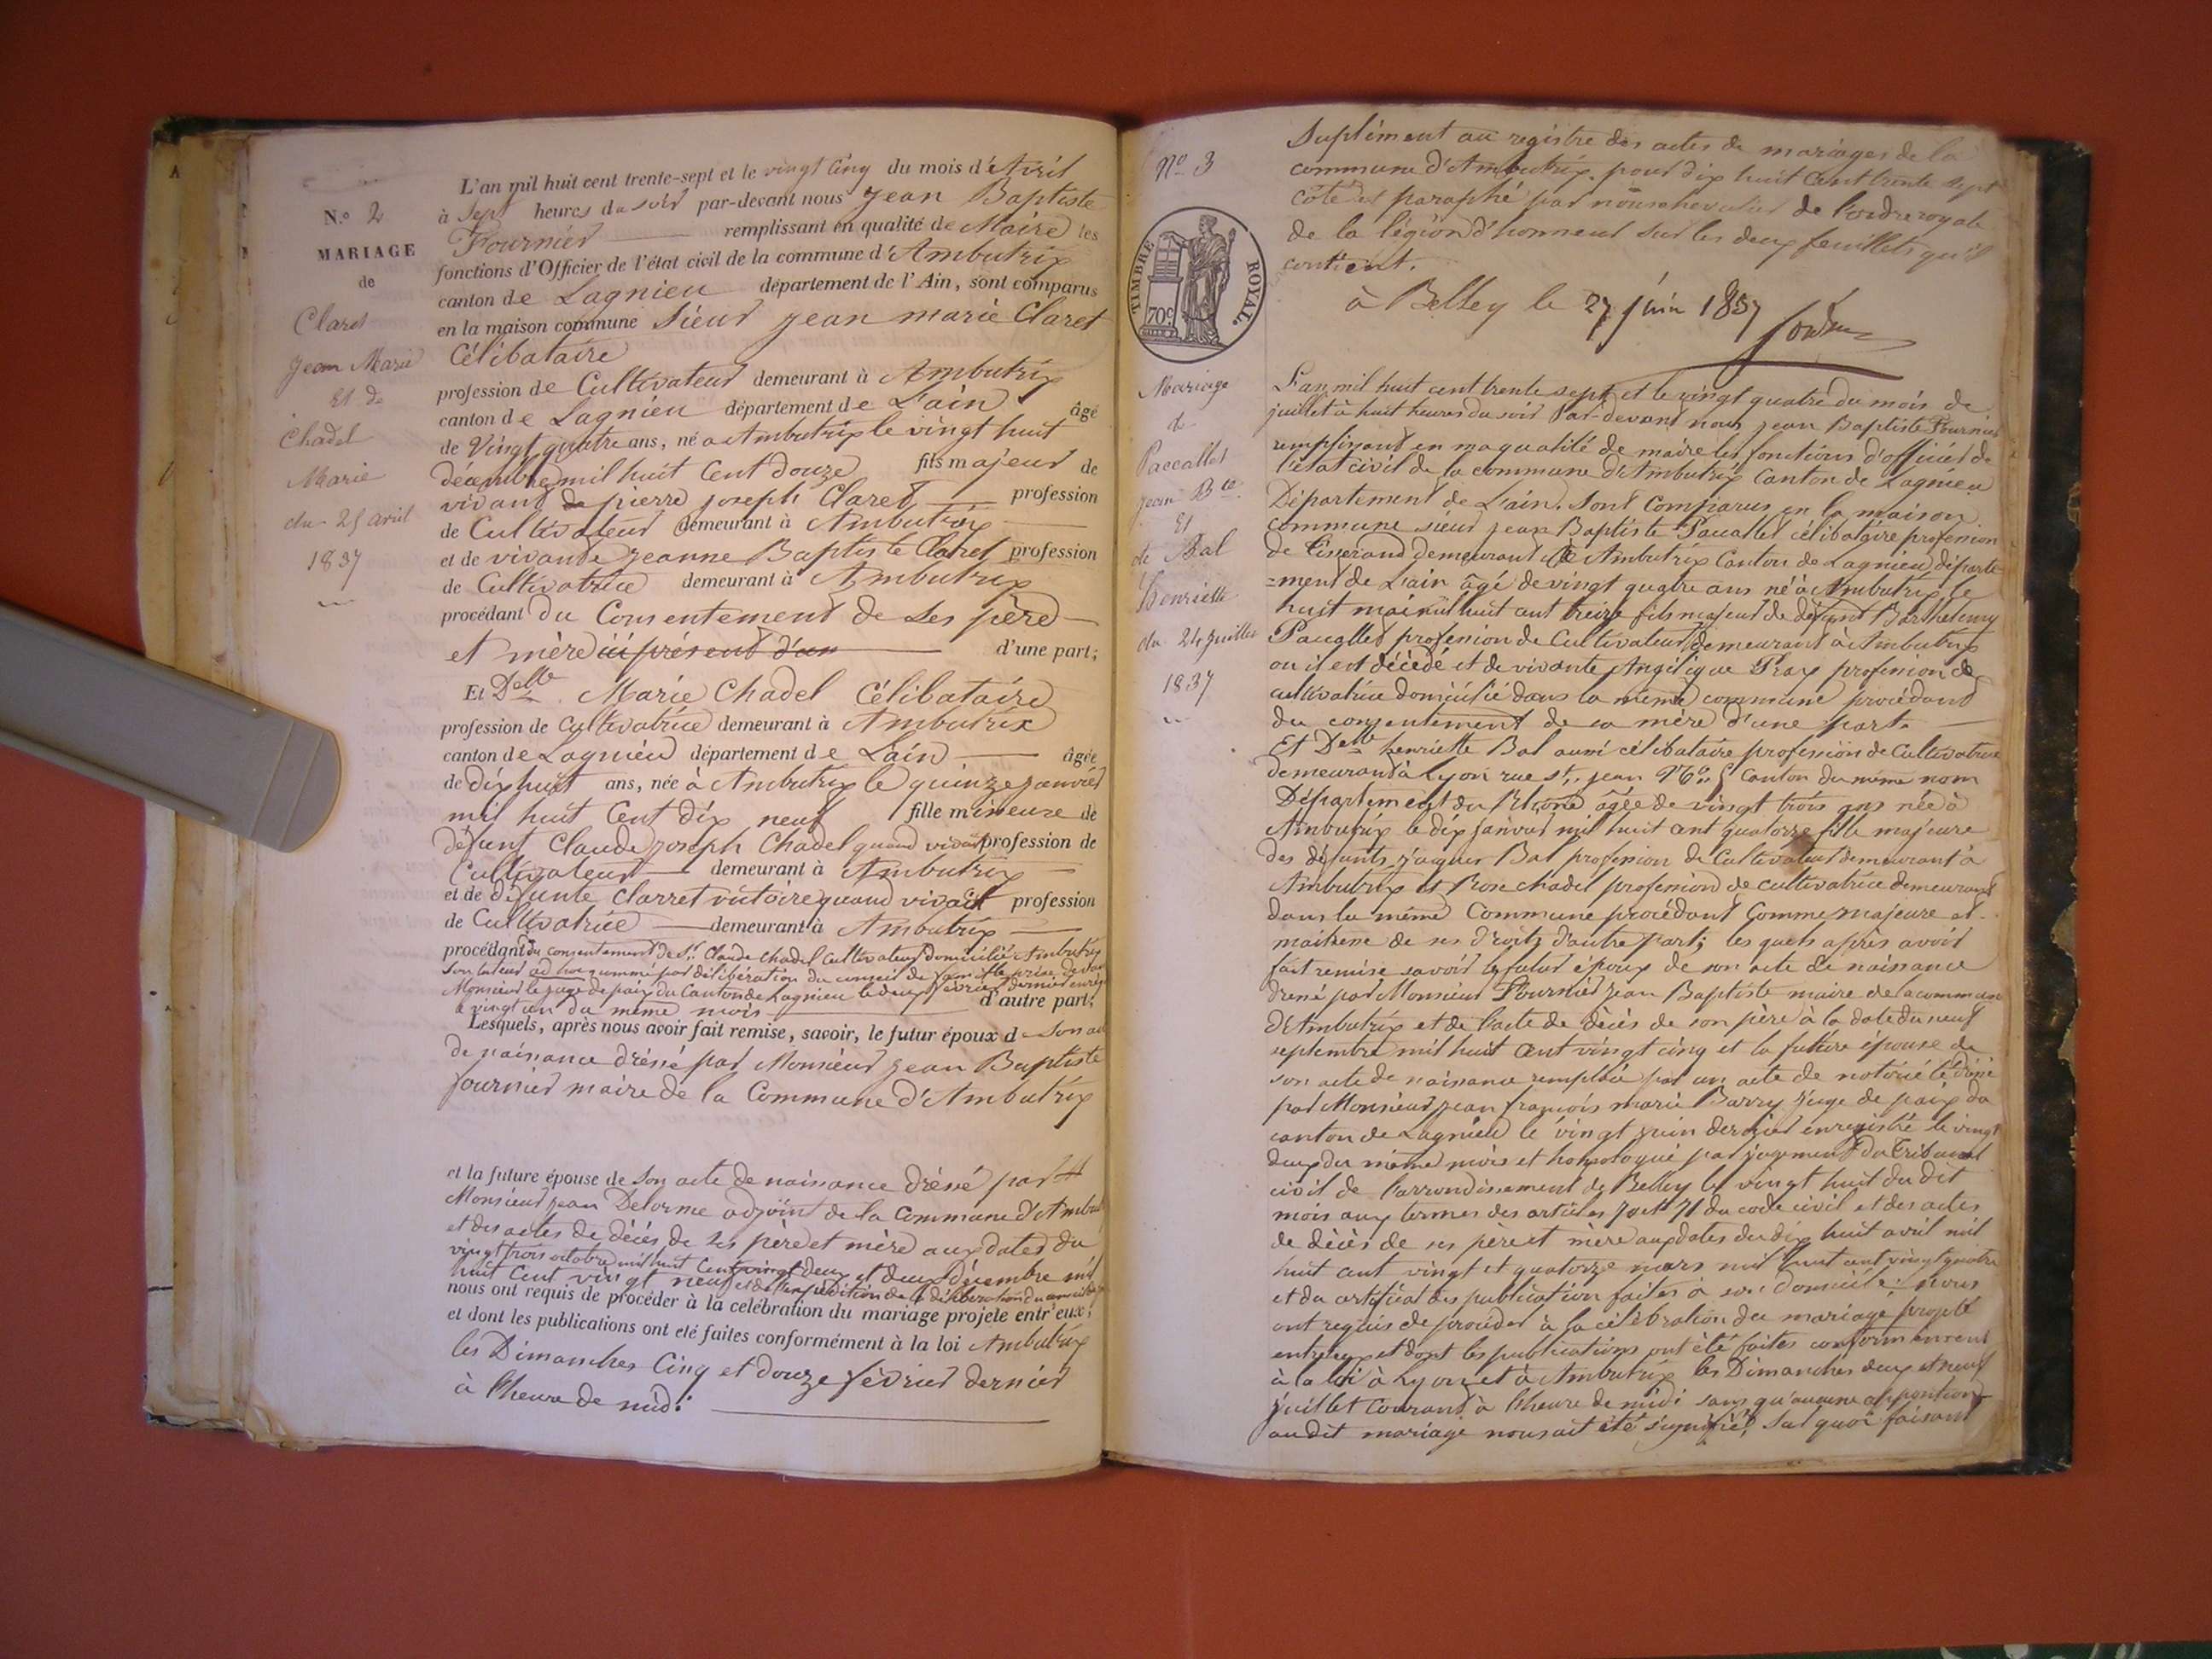 N.o 2
MARIAGE
de
Claret
Jean Marie
Et de
Chadel
Marie
du 25 avril
1837
L'an mil huit cent trente-sept et le vingt Cinq du mois d'Avril
à Sept heures du soir par-devant nous Jean Baptiste
Fournier remplissant en qualité de Maire les
fonctions d'Officier de l'état civil de la commune d'Ambutrix
canton de Lagnieu département de l'Ain, sont comparus
en la maison commune Sieur Jean marie Claret
Célibataire
profession de Cultivateur demeurant à Ambutrix
canton de Lagnieu département de L'ain âgé
de Vingt quatre ans, né a Ambutrix le vingt huit
décembre mil huit Cent douze fils majeur de
vivant de pierre joseph Claret profession
de Cultivateur demeurant à Ambutrix
et de vivante Jeanne Baptiste Claret profession
de Cultivatrice demeurant à Ambutrix
procédant du Consentement de Ses père
et mère ici présent d'une part;
Et Delle Marie Chadel Célibataire
profession de Cultivatrice demeurant à Ambutrix
canton de Lagnieu département de L'ain âgée
de dix huit ans, née à Ambutrix le quinze janvier
mil huit Cent dix neuf fille mineure de
défunt Claude joseph Chadel quand vivait profession de
Cultivateur demeurant à Ambutrix
et de défunte Clarret victoire quand vivait profession
de Cultivatrice demeurant à Ambutrix
procédant du consentement de Sr. Claude Chadel Cultivateur domicilié Ambutrix
son tuteur ad hoc nommé par délibération du conseil de famille prise devant
Monsieur le juge de paix du Canton de Lagnieu le deux février dernier
a vingt un du même mois d'autre part;
Lesquels, après nous avoir fait remise, savoir, le futur époux d Son
de naissance dréssé par Monsieur Jean Baptiste
fournier maire de la Commune d'Ambutrix
et la future épouse de Son acte de naissance dréssé par
Monsieur Jean Delorme adjoint de la Commune d'Ambut
et des actes de décés de ses père et mère aux dates du
vingt trois octobre mil huit Cent vingt deux et deux Décembre mil
huit Cent vingt neuf et de l'expédition de la délibération du conseil
nous ont requis de procéder à la celébration du mariage projete entr'eux,
et dont les publications ont eté faites conformément à la loi Ambutrix
les Dimanches Cinq et douze février dernier
à l'heure de midi
No 3
TIMBRE ROYAL.
70c
Suplément au registre des actes de mariages de la
commune d'Ambutrix pour dix huit Cent trente sept
côté et paraphé par nous chevalier de l'ordre royale
de la légion d'honneur sur les deux feuillets qu'il
contient.
à Belley le 27 juin 1837
Mariage
de
Paccallet
Jean Bte
Et
de Bal
Henriette
du 24 Juillet
1837
L'an mil huit cent trente sept et le vingt quatre du mois de
juillet à huit heures du soir Par-devant nous Jean Baptiste Fournier
remplissant en ma qualité de maire les fonctions d'officier de
l'état civil de la commune d'Ambutrix Canton de Lagnieu
Département de L'ain, Sont Comparus en la maison
Commune sieur Jean Baptiste Paccallet célibataire profession
de Tisserand demeurant à Ambutrix Canton de Lagnieu départe
=ment de L'ain âgé de vingt quatre ans né à Ambutrix le
huit mai mil huit cent treize fils majeur de défunt Barthelemy
Paccallet profession de Cultivateur demeurant à Ambutrix
ou il est décédé et de vivante Angélique Prax profession de
cultivatrice domiciliée dans la même commune procédant
du consentement de sa mère d'une part.
Et Delle henriette Bal aussi célibataire profession de Cultivatrice
demeurant à Lyon rue st. jean No 5 Canton du même nom
Département du Rhône âgée de vingt trois ans née à
Ambutrix le dix janvier mil huit cent quatorze fille majeure
des défunts jaques Bal profession de Cultivateur demeurant à
Ambutrix et Rose chadel profession de cultivatrice demeurant
dans la même Commune procédant Comme majeure et
maitresse de ses droits d'autre part; les quels après avoir
fait remise savoir le futur époux de son acte de naissance
dressé par Monsieur Fournier Jean Baptiste maire de la commune
d'Ambutrix et de l'acte de décès de son père à la date du neuf
septembre mil huit cent vingt cinq et la future épouse de
son acte de naissance remplacé par un acte de notoriété dréssé
par Monsieur Jean françois marie Barry juge de paix du
canton de Lagnieu le vingt juin dernier enregistré le vingt
deux du même mois et homologué par jugement du Tribunal
civil de l'arrondissement de Belley le vingt huit du dit
mois aux termes des articles 70 et 71 du code civil et des actes
de décès de ses père et mère aux dates du dix huit avril mil
huit cent vingt et quatorze mars mil huit cent vingt quatre
et du certificat des publication faites à son domicile; nous
ont requis de procéder à la célébration du mariage projeté
entr'eux et dont les publications ont été faites conformément
à la loi à Lyon et à Ambutrix les Dimanches deux et neuf
juillet Courant à l'heure de midi sans qu'aucune opposition
au dit mariage nous ait été signifié, Sur quoi faisant